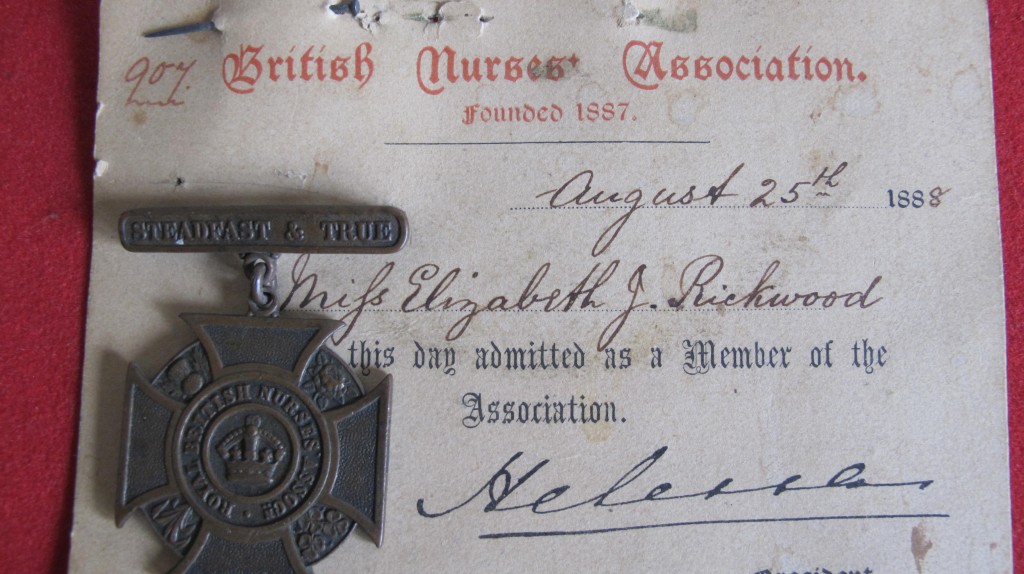 907
British Nurses' Association.
Founded 1887.
August 25th 1888
STEADFAST & TRUE
Miss Elizabeth J. Rickwood
this day admitted as a Member of the
Association.
ROYAL BRITISH NURSES' ASSOCN
Helena
President